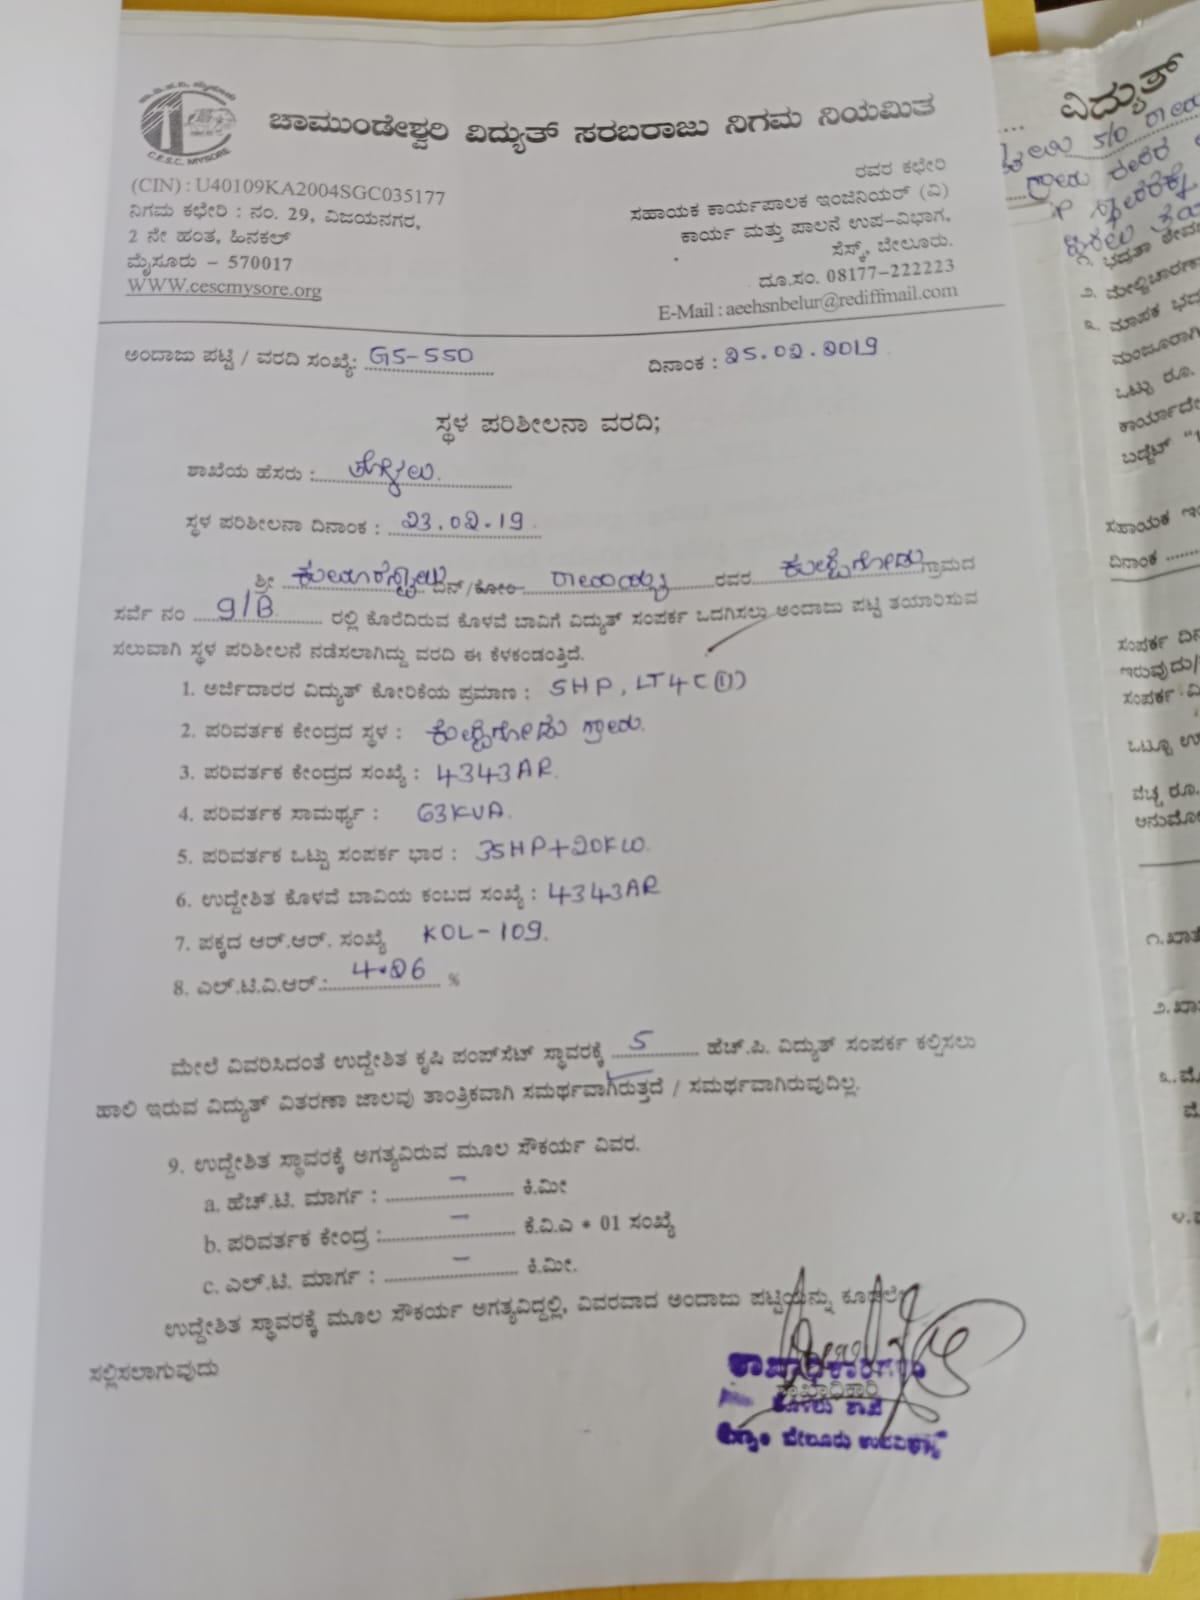 ಚಾ.ವಿ.ಸ.ನಿ. ಮೈಸೂರು
C.E.S.C. MYSORE
ಚಾಮುಂಡೇಶ್ವರಿ ವಿದ್ಯುತ್ ಸರಬರಾಜು ನಿಗಮ ನಿಯಮಿತ
(CIN) : U40109KA2004SGC035177
ನಿಗಮ ಕಛೇರಿ : ನಂ. 29, ವಿಜಯನಗರ,
2 ನೇ ಹಂತ, ಹಿನಕಲ್
ಮೈಸೂರು – 570017
WWW.cescmysore.org
ರವರ ಕಛೇರಿ
ಸಹಾಯಕ ಕಾರ್ಯಪಾಲಕ ಇಂಜಿನಿಯರ್ (ವಿ)
ಕಾರ್ಯ ಮತ್ತು ಪಾಲನೆ ಉಪ–ವಿಭಾಗ,
ಸೆಸ್ಕ್, ಬೇಲೂರು.
ದೂ.ಸಂ. 08177–222223
E-Mail : aeehsnbelur@rediffmail.com
ಅಂದಾಜು ಪಟ್ಟಿ / ವರದಿ ಸಂಖ್ಯೆ: GS-550
ದಿನಾಂಕ : 25.02.2019
ಸ್ಥಳ ಪರಿಶೀಲನಾ ವರದಿ;
ಶಾಖೆಯ ಹೆಸರು :
ಸ್ಥಳ ಪರಿಶೀಲನಾ ದಿನಾಂಕ : 23.02.19.
ಶ್ರೀ ಕುಮಾರಸ್ವಾಮಿ ಬಿನ್/ಕೋಂ ರಾಮಯ್ಯ ರವರ ಗ್ರಾಮದ
ಸರ್ವೆ ನಂ 9/B ರಲ್ಲಿ ಕೊರೆದಿರುವ ಕೊಳವೆ ಬಾವಿಗೆ ವಿದ್ಯುತ್ ಸಂಪರ್ಕ ಒದಗಿಸಲು ಅಂದಾಜು ಪಟ್ಟಿ ತಯಾರಿಸುವ
ಸಲುವಾಗಿ ಸ್ಥಳ ಪರಿಶೀಲನೆ ನಡೆಸಲಾಗಿದ್ದು ವರದಿ ಈ ಕೆಳಕಂಡಂತ್ತಿದೆ.
1. ಅರ್ಜಿದಾರರ ವಿದ್ಯುತ್ ಕೋರಿಕೆಯ ಪ್ರಮಾಣ : 5HP, LT4C(1)
2. ಪರಿವರ್ತಕ ಕೇಂದ್ರದ ಸ್ಥಳ : ಗ್ರಾಮ.
3. ಪರಿವರ್ತಕ ಕೇಂದ್ರದ ಸಂಖ್ಯೆ : 4343AR.
4. ಪರಿವರ್ತಕ ಸಾಮರ್ಥ್ಯ : 63KVA.
5. ಪರಿವರ್ತಕ ಒಟ್ಟು ಸಂಪರ್ಕ ಭಾರ : 35HP+20KW.
6. ಉದ್ದೇಶಿತ ಕೊಳವೆ ಬಾವಿಯ ಕಂಬದ ಸಂಖ್ಯೆ : 4343AR
7. ಪಕ್ಕದ ಆರ್.ಆರ್. ಸಂಖ್ಯೆ KOL-109.
8. ಎಲ್.ಟಿ.ವಿ.ಆರ್ : 4.26 %
ಮೇಲೆ ವಿವರಿಸಿದಂತೆ ಉದ್ದೇಶಿತ ಕೃಷಿ ಪಂಪ್‌ಸೆಟ್ ಸ್ಥಾವರಕ್ಕೆ 5 ಹೆಚ್.ಪಿ. ವಿದ್ಯುತ್ ಸಂಪರ್ಕ ಕಲ್ಪಿಸಲು
ಹಾಲಿ ಇರುವ ವಿದ್ಯುತ್ ವಿತರಣಾ ಜಾಲವು ತಾಂತ್ರಿಕವಾಗಿ ಸಮರ್ಥವಾಗಿರುತ್ತದೆ / ಸಮರ್ಥವಾಗಿರುವುದಿಲ್ಲ.
9. ಉದ್ದೇಶಿತ ಸ್ಥಾವರಕ್ಕೆ ಅಗತ್ಯವಿರುವ ಮೂಲ ಸೌಕರ್ಯ ವಿವರ.
a. ಹೆಚ್.ಟಿ. ಮಾರ್ಗ : – ಕಿ.ಮೀ
b. ಪರಿವರ್ತಕ ಕೇಂದ್ರ : – ಕೆ.ವಿ.ಎ * 01 ಸಂಖ್ಯೆ
c. ಎಲ್.ಟಿ. ಮಾರ್ಗ : – ಕಿ.ಮೀ.
ಉದ್ದೇಶಿತ ಸ್ಥಾವರಕ್ಕೆ ಮೂಲ ಸೌಕರ್ಯ ಅಗತ್ಯವಿದ್ದಲ್ಲಿ, ವಿವರವಾದ ಅಂದಾಜು ಪಟ್ಟಿಯನ್ನು ಕೂಡಲೇ
ಸಲ್ಲಿಸಲಾಗುವುದು
ಶಾಖಾಧಿಕಾರಿಗಳು
ಶಾಖಾಧಿಕಾರಿ
ಶಾಖೆ
ಬೇಲೂರು ಉಪವಿಭಾಗ
ವಿದ್ಯುತ್
S/o
ಸಹಾಯಕ
ದಿನಾಂಕ